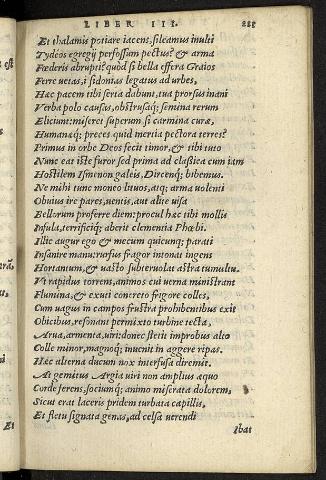 LIBER III. 228
Et thalamis potiare iacens, sileamus inulti
Tydeos egregij perfossum pectus? & arma
Fœderis abrupti? quod si bella effera Graios
Ferre uetas, i Sidonias legatus ad urbes,
Hæc pacem tibi serta dabunt, tua prorsus inani
Verba polo causas, obstrusaq; semina rerum
Elicium: miseret superum si carmina curæ,
Humanæq; preces quid inertia pectora terres?
Primus in orbe Deos fecit timor, & tibi tuto
Nunc eat iste furor sed prima ad classica cum iam
Hostilem Ismenon galeis, Dircenq; bibemus.
Ne mihi tunc moneo lituos, atq; arma uolenti
Obuius ire pares, uenis, aut alite uisa
Bellorum proferre diem: procul hæc tibi mollis
Insula, terrificiq; aberit clementia Phœbi.
Illic augur ego & mecum quicunq; parati
Insanire manu: rursus fragor intonat ingens
Hortantum, & uasto subter uolat astra tumultu.
Vt rapidus torrens, animos cui uerna ministrant
Flumina, & exuti concreto frigore colles,
Cum uagus in campos frustra prohibentibus exit
Obicibus, resonant permixto turbine tecta,
Arua, armenta, uiri: donec stetit improbus alto
Colle minor, magnoq; inuenit in aggere ripas.
Hæc alterna ducum nox interfusa diremit.
At gemitus Argia uiri non amplius æquo
Corde ferens, sociumq; animo miserata dolorem,
Sicut erat laceris pridem turbata capillis,
Et fletu signata genas, ad celsa uerendi
Ibat